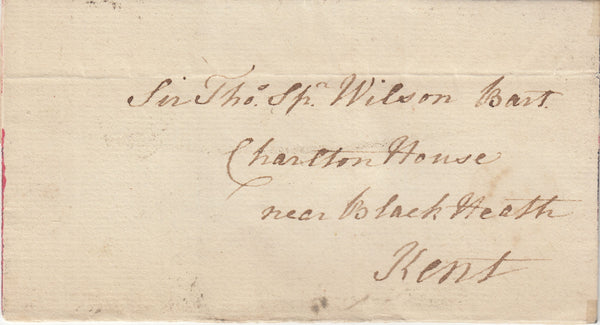 Sir Tho.s Sp.r Wilson Bart.
Charlton House
near Black Heath
Kent